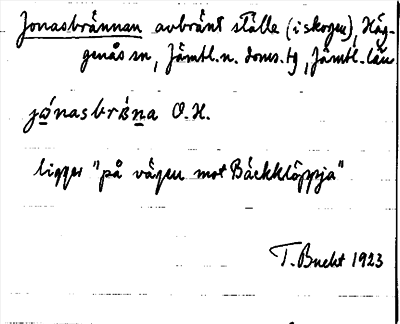 Jonasbrännan avbränt ställe (i skogen), Häg-
genås sn, Jämtl. n. doms. tg, Jämtl. län
jo̲nasbrän̲a O. H.
ligger "på vägen mot Bäckklöppja"
T. Bucht 1923